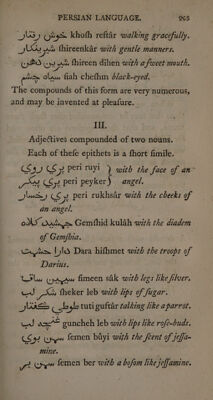 PERSIAN LANGUAGE. 
خوش رفتار khosh reftâr walking gracefully.
شیرینکار shireenkâr with gentle manners.
شیرین دهن shireen dihen with a sweet mouth.
سیاه چشم siah cheshm black-eyed.
The compounds of this form are very numerous,
and may be invented at pleasure.
III.
Adjectives compounded of two nouns.
Each of these epithets is a short simile.
پری روی peri ruyi } with the face of an
پری پیکر peri peyker } angel.
پری رخسار peri rukhsâr with the cheeks of
an angel.
جمشید کلاه Gemshid kulâh with the diadem
of Gemshid.
دارا حشمت Dara hishmet with the troops of
Darius.
سیمین ساق simeen sâk with legs like silver.
شکر لب sheker leb with lips of sugar.
طوطی گفتار tuti guftâr talking like a parrot.
غنچه لب guncheh leb with lips like rose-buds.
سمن بوی semen bûyi with the scent of jessa-
mine.
سمن بر semen ber with a bosom like jessamine.